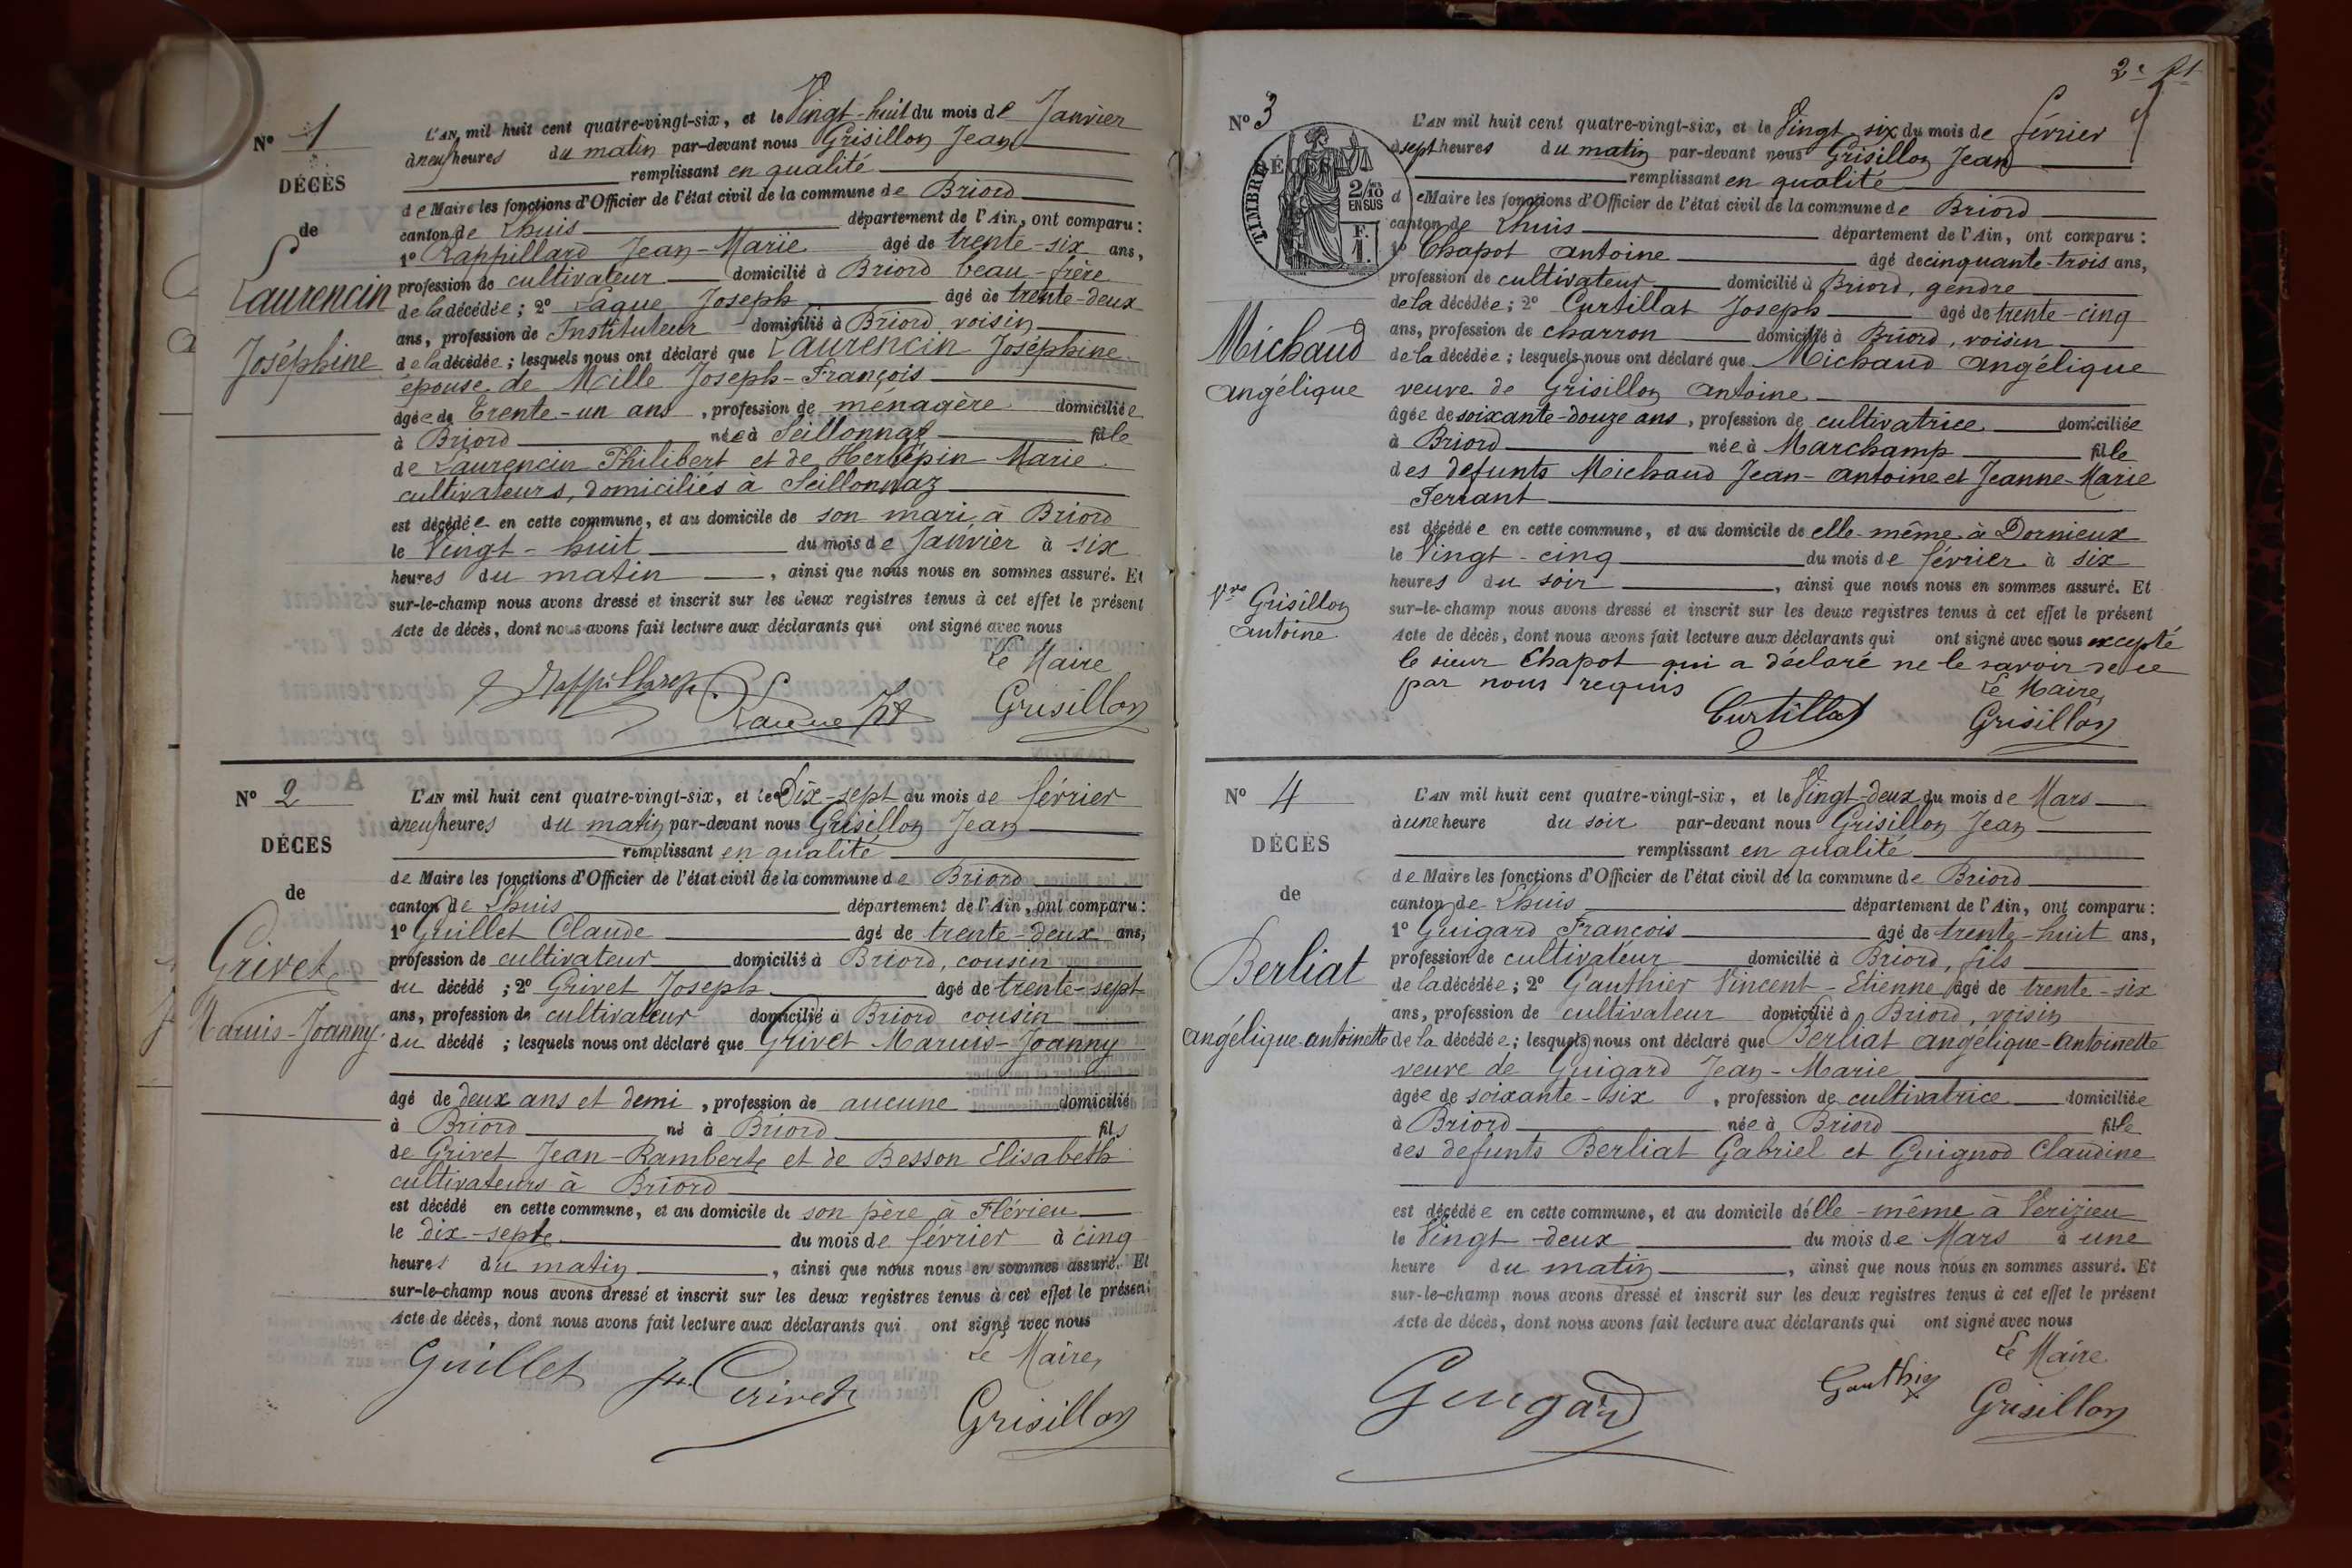 N° 1
DÉCÈS
de
Laurencin
Joséphine
L'AN mil huit cent quatre-vingt-six, et le Vingt-huit du mois de Janvier
à neuf heures du matin par-devant nous Grisillon Jean
remplissant en qualité
de Maire les fonctions d'Officier de l'état civil de la commune de Briord
canton de Lhuis département de l'Ain, ont comparu :
1° Rappillard Jean-Marie âgé de trente-six ans,
profession de cultivateur domicilié à Briord beau-frère
de la décédée ; 2° Lague Joseph âgé de trente-deux
ans, profession de Instituteur domicilié à Briord voisin
de la décédée ; lesquels nous ont déclaré que Laurencin Joséphine
épouse de Mille Joseph-François
âgée de Trente-un ans, profession de menagère domiciliée
à Briord née à Seillonnaz fille
de Laurencin Philibert et de Herbépin Marie
cultivateurs, domiciliés à Seillonnaz
est décédée en cette commune, et au domicile de son mari à Briord
le Vingt-huit du mois de Janvier à six
heures du matin, ainsi que nous nous en sommes assuré. Et
sur-le-champ nous avons dressé et inscrit sur les deux registres tenus à cet effet le présent
Acte de décès, dont nous avons fait lecture aux déclarants qui ont signé avec nous
Le Maire
Grisillon
N° 2
DÉCES
de
Grivet
Maruis-Joanny
L'AN mil huit cent quatre-vingt-six, et le Dix-sept du mois de février
à neuf heures du matin par-devant nous Grisillon Jean
remplissant en qualité
de Maire les fonctions d'Officier de l'état civil de la commune de Briord
canton de Lhuis département de l'Ain, ont comparu :
1° Guillet Claude âgé de trente-deux ans,
profession de cultivateur domicilié à Briord, cousin
du décédé ; 2° Grivet Joseph âgé de trente-sept
ans, profession de cultivateur domicilié à Briord cousin
du décédé ; lesquels nous ont déclaré que Grivet Maruis-Joanny
âgé de deux ans et demi, profession de aucune domicilié
à Briord né à Briord fils
de Grivet Jean-Rambert et de Besson Elisabeth
cultivateurs à Briord
est décédé en cette commune, et au domicile de son père à Flévieu
le dix-sept du mois de février à cinq
heures du matin, ainsi que nous nous en sommes assuré. Et
sur-le-champ nous avons dressé et inscrit sur les deux registres tenus à cet effet le présent
Acte de décès, dont nous avons fait lecture aux déclarants qui ont signé avec nous
Guillet Grivet
Le Maire,
Grisillon
2e
N° 3
DÉCÈS
TIMBRE
2/10 EN SUS
F. 1.
Michaud
Angélique
Vve Grisillon
Antoine
L'AN mil huit cent quatre-vingt-six, et le Vingt six du mois de février
à sept heures du matin par-devant nous Grisillon Jean
remplissant en qualité
de Maire les fonctions d'Officier de l'état civil de la commune de Briord
canton de Lhuis département de l'Ain, ont comparu :
1° Chapot Antoine âgé de cinquante-trois ans,
profession de cultivateur domicilié à Briord, gendre
de la décédée ; 2° Curtillat Joseph âgé de trente-cinq
ans, profession de charron domicilié à Briord, voisin
de la décédée ; lesquels nous ont déclaré que Michaud Angélique
veuve de Grisillon Antoine
âgée de soixante-douze ans, profession de cultivatrice domiciliée
à Briord née à Marchamp fille
des defunts Michaud Jean-Antoine et Jeanne-Marie
Ferrant
est décédée en cette commune, et au domicile de elle-même à Dornieux
le Vingt-cinq du mois de février à six
heures du soir, ainsi que nous nous en sommes assuré. Et
sur-le-champ nous avons dressé et inscrit sur les deux registres tenus à cet effet le présent
Acte de décès, dont nous avons fait lecture aux déclarants qui ont signé avec nous excepté
le sieur Chapot qui a déclaré ne le savoir de ce
par nous requis
Curtillat
Le Maire,
Grisillon
N° 4
DÉCÈS
de
Berliat
Angélique Antoinette
L'AN mil huit cent quatre-vingt-six, et le Vingt-deux du mois de Mars
à une heure du soir par-devant nous Grisillon Jean
remplissant en qualité
de Maire les fonctions d'Officier de l'état civil de la commune de Briord
canton de Lhuis département de l'Ain, ont comparu :
1° Guigard François âgé de trente-huit ans,
profession de cultivateur domicilié à Briord, fils
de la décédée ; 2° Gauthier Vincent-Etienne âgé de trente-six
ans, profession de cultivateur domicilié à Briord, voisin
de la décédée ; lesquels nous ont déclaré que Berliat Angélique-Antoinette
veuve de Guigard Jean-Marie
âgée de soixante-six, profession de cultivatrice domiciliée
à Briord née à Briord fille
des defunts Berliat Gabriel et Guignod Claudine
est décédée en cette commune, et au domicile d'elle-même à Verizieu
le Vingt-deux du mois de Mars à une
heure du matin, ainsi que nous nous en sommes assuré. Et
sur-le-champ nous avons dressé et inscrit sur les deux registres tenus à cet effet le présent
Acte de décès, dont nous avons fait lecture aux déclarants qui ont signé avec nous
Guigard Gauthier
Le Maire
Grisillon